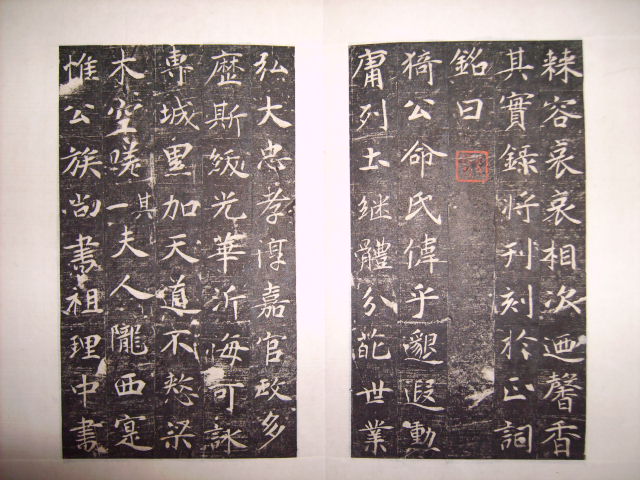 棘容哀哀相次迺馨香
其實錄將刊刻於正詞
銘曰
猗公命氏倬乎邈遐勳
庸列土継體分世業
弘大忠孝淳嘉官政多
歷斯級光華沂海可詠
專城里加天道不憗梁
木空嗟其一夫人隴西寔
惟公族尚書祖理中書